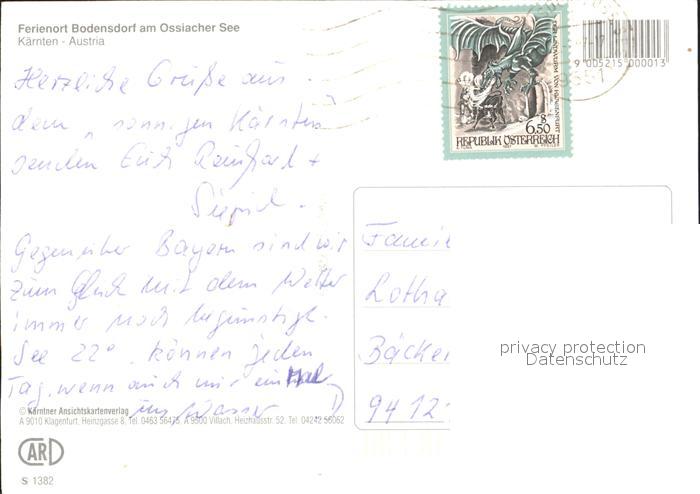 Ferienort Bodensdorf am Ossiacher See
Kärnten - Austria
9 005215 000013
9551
DER LINDWURM VON KLAGENFURT
6.50
REPUBLIK ÖSTERREICH
Herzliche Grüße aus
dem „sonnigen Kärnten"
senden Euch Reinhard +
Gegenüber Bayern sind wir
zum Glück mit dem Wetter
immer noch begünstigt.
See 22°, können jeden
Tag, wenn auch nur einmal
ins Wasser !)
Famil
Lotha
Bäcke
9412
privacy protection
Datenschutz
© Kärntner Ansichtskartenverlag
A 9010 Klagenfurt, Heinzgasse 8, Tel. 0463 56475, A 9500 Villach, Heizhausstr. 52, Tel. 04242 56062
CARD
S 1382